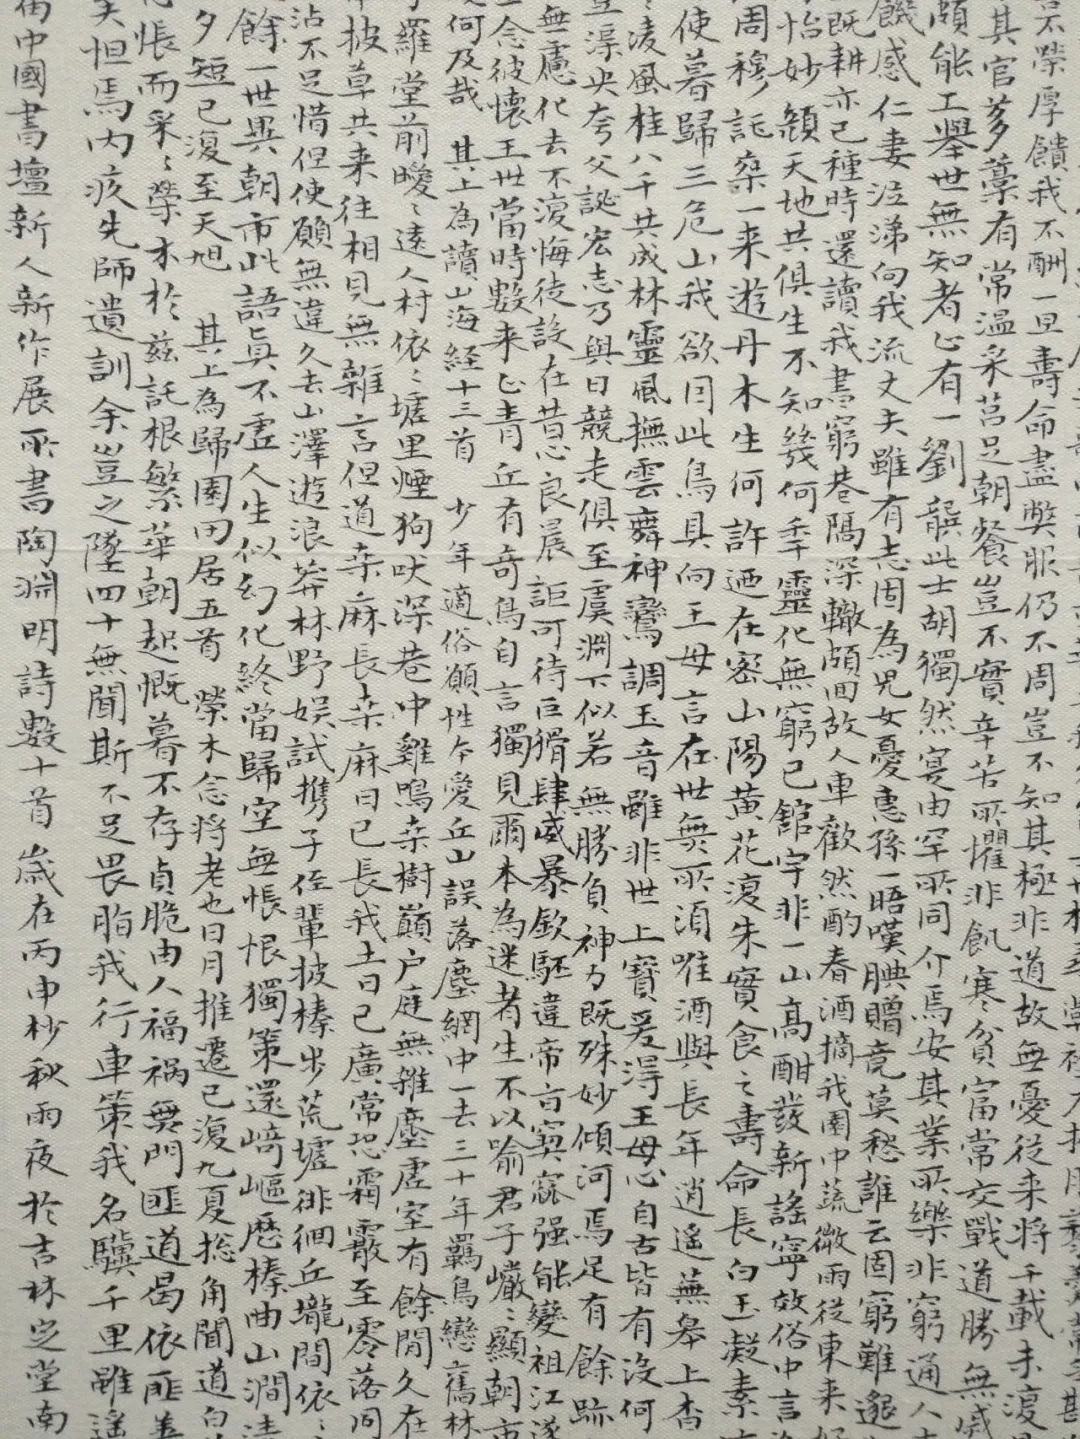 不榮厚饋我不酬一旦壽命盡弊服仍不周豈不知其極非道故無憂從来将千載未復
其官芻藁有常温采莒足朝餐豈不實辛苦所懼非飢寒貧富常交戰道勝無戚
頗能工舉世無知者止有一劉龔此士胡獨然寔由罕所同介焉安其業所樂非窮通人
饑感仁妻泣涕向我流丈夫雖有志固為児女憂惠孫一晤嘆腆贈竟莫愁誰云固窮難邈
既耕亦已種時還讀我書窮巷隔深轍頗回故人車歡然酌春酒摘我園中蔬微雨從東来好
怡妙顏天地共俱生不知幾何年靈化無窮已館宇非一山高酣發新謠寧效俗中言
周穆託乘一来遊丹木生何許迺在密山陽黄花復朱實食之壽命長白玉凝素
使暮歸三危山我欲因此鳥具向王母言在世無所須唯酒與長年逍遥蕪皋上杳
凌風桂八千共成林靈風撫雲舞神鸞調玉音雖非世上寶爰得王母心自古皆有没何
豈渠央夸父誕宏志乃與日競走俱至虞淵下似若無勝負神力既殊妙傾河焉足有餘跡
無慮化去不復悔徒設在昔心良晨詎可待巨猾肆威暴欽駓違帝旨窫窳强能變祖江遂
念彼懷王世當時數来止青丘有奇鳥自言獨見爾本為迷者生不以喻君子巖〻顯朝市
何及哉 其上為讀山海経十三首 少年適俗願性本愛丘山誤落塵網中一去三十年羈鳥戀舊林
羅堂前曖〻遠人村依〻墟里煙狗吠深巷中雞鳴桒樹巔户庭無雜塵虚室有餘閒久在
披草共来往相見無雜言但道桒麻長桒麻日已長我土日已廣常恐霜霰至零落同
沾不足惜但使願無違久去山澤遊浪莽林野娱試携子侄輩披榛步荒墟徘徊丘壠間依〻
餘一世異朝市此語真不虚人生似幻化終當歸空無帐恨獨策還崎嶇歷榛曲山澗清
夕短已復至天旭 其上為歸園田居五首 榮木念将老也日月推遷已復九夏捴角聞道白
悵而采〻榮木於兹託根繁華朝起慨暮不存貞脆由人福禍無門匪道曷依匪善
矣怛焉内疚先師遺訓余豈之墜四十無聞斯不足畏脂我行車策我名驥千里雖遥
中國書壇新人新作展所書陶淵明詩數十首嵗在丙申杪秋雨夜於吉林堂南